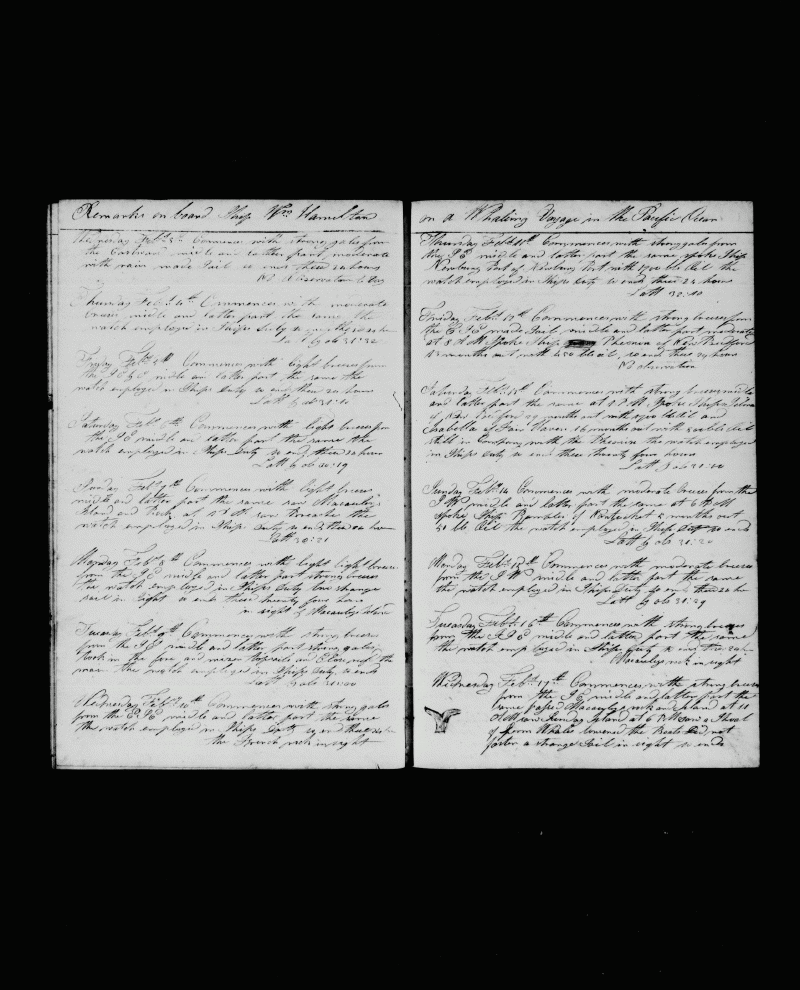 Remarks on board Ship Wm Hamilton
Wednesday Feb 3th Commences with strong gales from
the Eastward middle and latter part moderate
with rain made Sail so ends these 24 hours
No Observation
Thursday Feb 4th Commences with moderate
breezes middle and latter part the same the
watch employed in Ships duty so ends these 24 hours
Latt by ob 31:32
Friday Feb 5th Commences with light breezes from
the middle and latter part the same the
watch employed in Ships duty so ends these 24 hours
Latt by ob 31:10
Saturday Feb 6th Commences with light breezes from
the S E middle and latter part the same the
watch employed in Ships duty so ends these 24 hours
Latt by ob 30:19
Sunday Feb 7th Commences with light breezes
middle and latter part the same saw Macauleys
Island and at 2 P M saw the
watch employed in Ships duty so ends these 24 hours
Latt 30:21
Monday Feb 8th Commences with light light breezes
from the S E middle and latter part strong breezes
the watch employed in Ships duty one strange
sail in sight so ends these twenty four hours
in sight of Macauleys Island
Tuesday Feb 9th Commences with strong breezes
from the S E middle and latter part strong gales
took in the fore and mizen topsails and Close reef the
main the watch employed in Ships duty so ends
Latt by ob 31:00
Wednesday Feb 10th Commences with strong gales
from the E S E middle and latter part the same
the watch employed in Ships duty so ends these 24 hr
the French rock in sight
on a Whaleing Voyage in the Pacific Ocean
Thursday Feb 11th Commences with strong gales from
the S E middle and latter part the same spoke Ship
Newbury Port of with 1700 bbls Oil the
watch employed in Ships duty so ends these 24 hours
Latt 30:40
Friday Feb 12th Commences with strong breezes from
the E S E made Sail middle and latter part moderate
at 5 A M Spoke Ship Phoenix of New Bedford
months out with 450 bbls oil so ends these 24 hours
No observation
Saturday Feb 13th Commences with strong breezes middle
and latter part the same at 5 P M Spoke Ships
of New Bedford months out with bbls oil and
Isabella of Fair Haven 16 months out with bbls oil
still in Company with the Phoenix the watch employed
in Ships duty so ends these twenty four hours
Latt by ob 31:10
Sunday Feb 14 Commences with moderate breezes from the
S W middle and latter part the same at 6 A M
Spoke Ship Rambler of Nantucket months out
50 bb Oil the watch employed in Ships duty so ends
Latt by ob 31:20
Monday Feb 15th Commences with moderate breezes
from the S W middle and latter part the same
the watch employed in Ships duty so ends these 24 hr
Latt by ob 31:29
Tuesday Feb 16th Commences with strong breezes
from the S S E middle and latter part the same
the watch employed in Ships duty so ends these 24 h
Macauleys rock in sight
Wednesday Feb 17th Commences with strong breezes
from the S E middle and latter part the
same passed Macauleys rock and Island at 11
A M saw Sunday Island at 6 P M saw a Shoal
of Sperm Whales lowered the Boats did not
fasten a strange Sail in sight so ends